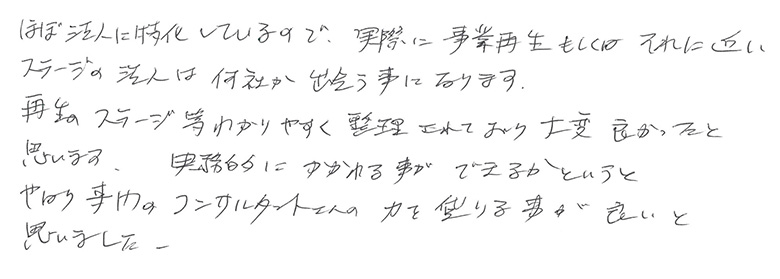 ほぼ法人に特化しているので、実際に事業再生もしくは それに近い
ステージの法人は何社か出会う事になります。
再生のステージ等わかりやすく整理されており大変良かったと
思います。 実務的にかかわる事ができるかというと
やはり専門のコンサルタントさんの力を借りる事が良いと
思いました。